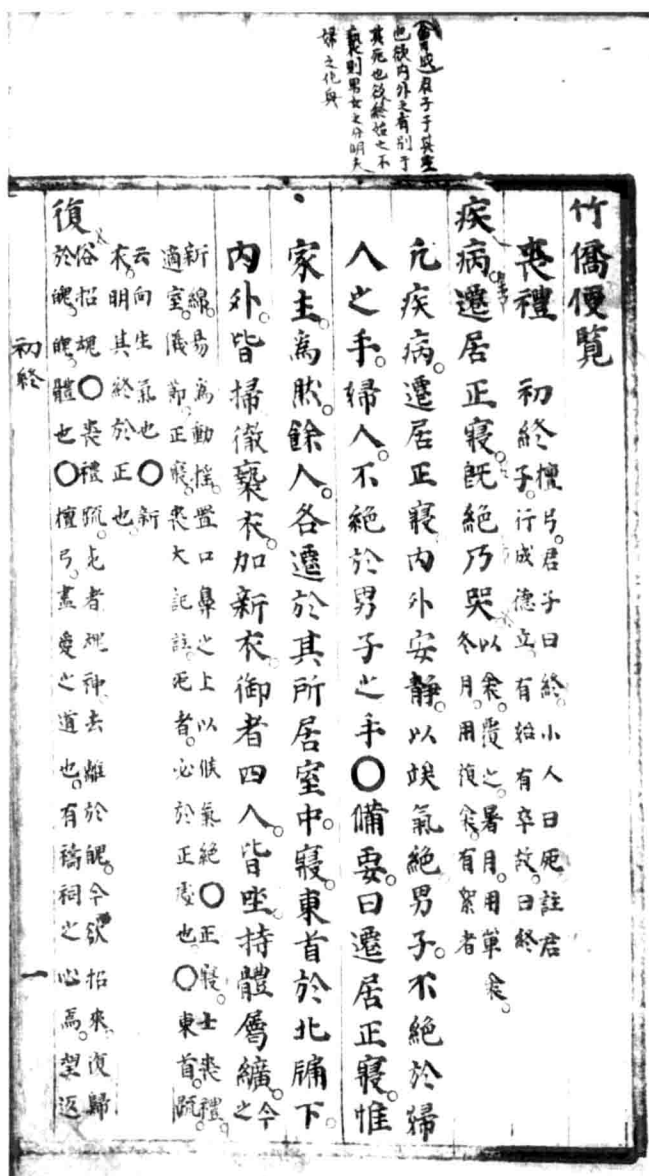 曾成君子于其生
也欲內外之有別于
其死也欲終始之不
褻則男女之分明夫
婦之化興
竹僑便覽
喪禮
初終檀弓。君子曰終。小人曰死註君
子。行成德立。有始有卒故。曰終
疾病。遷居正寢。既絶乃哭以衾。覆之。暑月。用單衾。
冬月。用復衾。有絮者
凡疾病。遷居正寢內外安靜。以竢氣絶男子。不絶於婦
人之手。婦人。不絶於男子之手○備要。曰遷居正寢。惟
家主。爲然。餘人。各遷於其所居室中。寢。東首於北牖下。
內外。皆掃徹褻衣。加新衣。御者四人。皆坐。持體屬纊。今之
新綿。易爲動搖。置口鼻之上以候氣絶○正寢。士喪禮。
適室。儀節。正寢。喪大記註。死者。必於正處也。○東首。疏。
云向生氣也○新
衣。明其終於正也。
復
俗招魂○喪禮疏。死者魂神去離於魄。今欲招來。復歸
於魄。魄。體也○檀弓。盡愛之道也。有禱祠之心焉。望返
初終
一